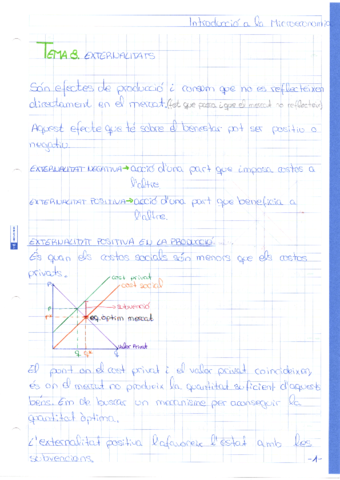 Introducció a la Microeconomia
TEMA 8: EXTERNALITATS
Són efectes de producció i consum que no es reflecteixen
directament en el mercat (tot que passa i que el mercat no reflecteix)
Aquest efecte que té sobre el benestar pot ser positiu o
negatiu.
EXTERNALITAT NEGATIVA → acció d'una part que imposa costos a
l'altre
EXTERNALITAT POSITIVA → acció d'una part que beneficia a
l'altre.
EXTERNALITAT POSITIVA EN LA PRODUCCIÓ:
És quan els costos socials són menors que els costos
privats.
P
cost privat
cost social
subvenció
eq. òptim mercat
valor privat
El punt on el cost privat i el valor privat coincideixen,
és on el mercat no produirà la quantitat suficient d'aquests
béns. Em de buscar un mecanisme per aconseguir la
quantitat òptima.
L'externalitat positiva l'afavoreix l'estat amb les
subvencions.
-1-